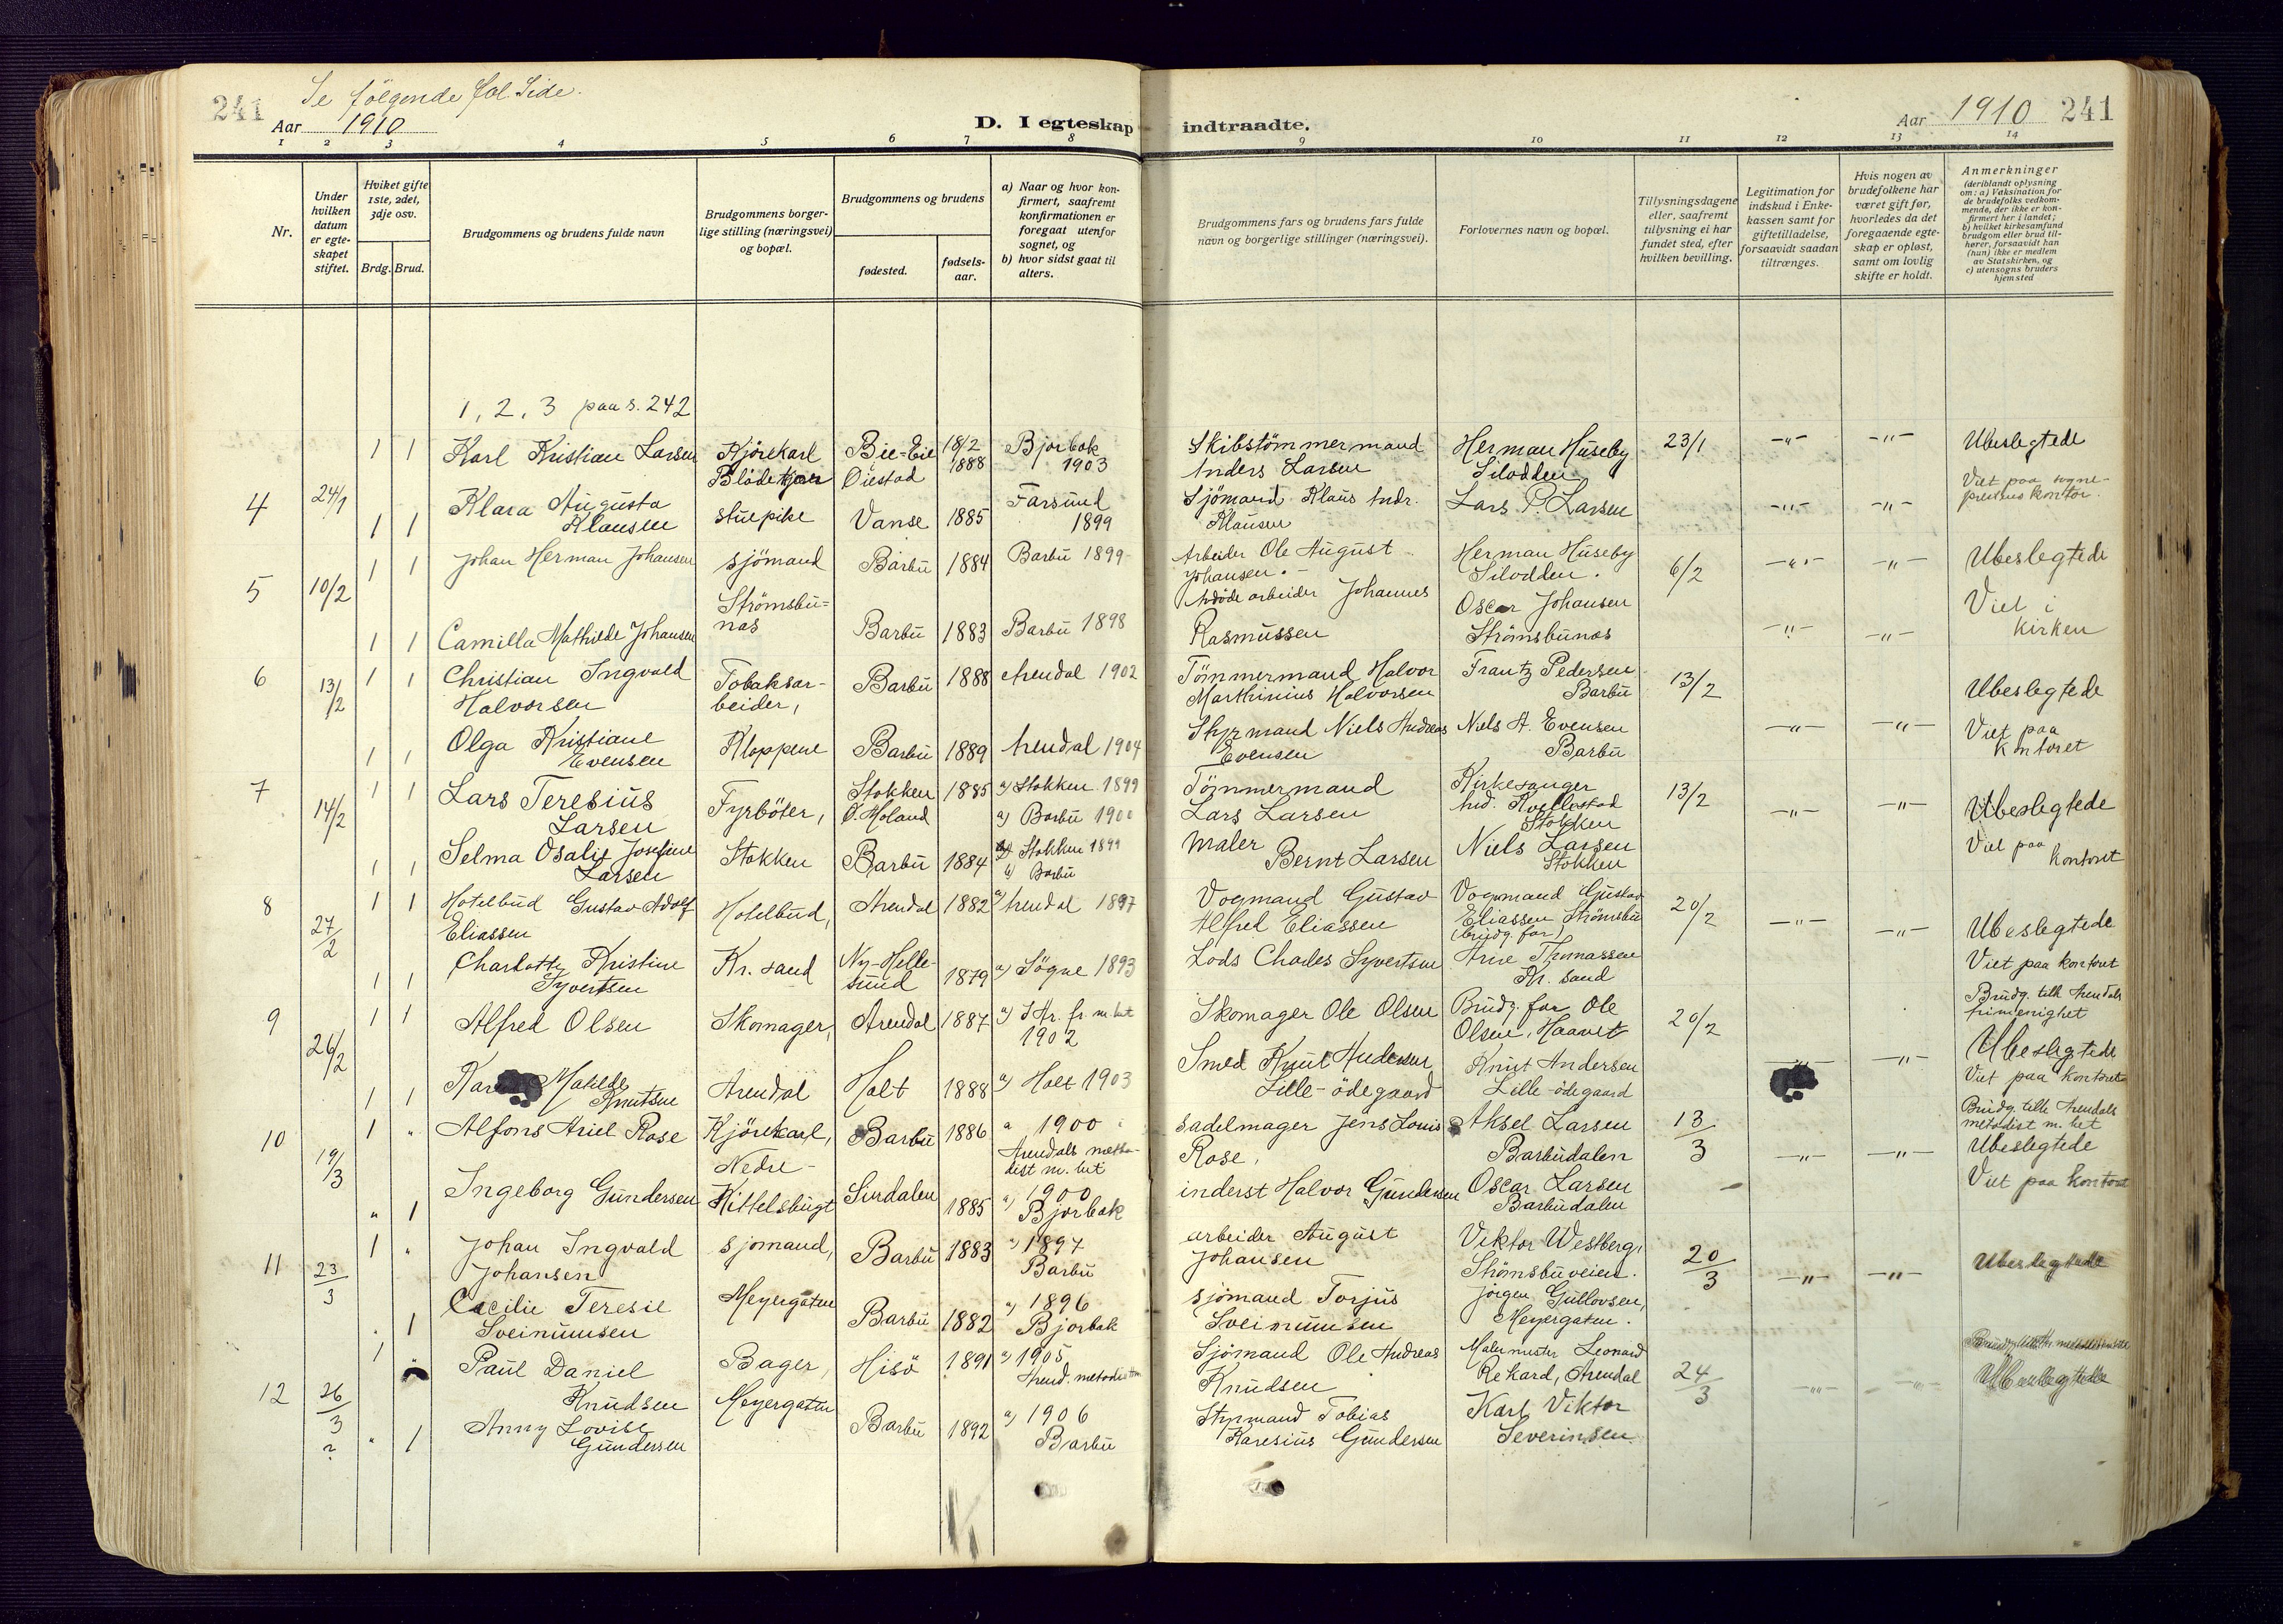 241
Se følgende fol. Side.
Aar 1910
D. I egteskap indtraadte.
Aar 1910 241
1 2 3 4 5 6 7 8 9 10 11 12 13 14
Nr.
Under hvilken datum er egteskapet stiftet.
Hviket gifte 1ste, 2det, 3dje osv.
Brdg. Brud.
Brudgommens og brudens fulde navn
Brudgommens borgerlige stilling (næringsvei) og bopæl.
Brudgommens og brudens
fødested.
fødselsaar.
a) Naar og hvor konfirmert, saafremt konfirmationen er foregaat utenfor sognet, og
b) hvor sidst gaat til alters.
Brudgommens fars og brudens fars fulde navn og borgerlige stillinger (næringsvei).
Forlovernes navn og bopæl.
Tillysningsdagene eller, saafremt tillysning ei har fundet sted, efter hvilken bevilling.
Legitimation for indskud i Enkekassen samt for giftetilladelse, forsaavidt saadan tiltrænges.
Hvis nogen av brudefolkene har været gift før, hvorledes da det foregaaende egteskap er opløst, samt om lovlig skifte er holdt.
Anmerkninger
(deriblandt oplysning om: a) Vaksination for de brudefolks vedkommende, der ikke er konfirmert her i landet;
b) hvilket kirkesamfund brudgom eller brud tilhører, forsaavidt han (hun) ikke er medlem av Statskirken, og
c) utensogns bruders hjemsted
1, 2, 3 paa s. 242
4 24/1
1 1 Karl Kristian Larsen Kjørekarl Blödekjær Bie-Eie Öiestad 18/2 1888 Bjorbæk 1903 Skibstömmermand Anders Larsen Herman Huseby Silodden 23/1 -"- -"- Ubeslegtede
1 1 Klara Augusta Klausen stuepike Vanse 1885 Farsund 1899 Sjömand Klaus Andr. Klausen Lars P. Larsen -"- -"- Viet paa sogneprestens kontor.
5 10/2
1 1 Johan Herman Johansen sjömand Barbu 1884 Barbu 1899 Arbeider Ole August Johansen. Herman Huseby Silodden. 6/2 -"- -"- Ubeslegtede
1 1 Camilla Mathilde Johansen Strömsbunæs Barbu 1883 Barbu 1898 Avdöde arbeider Johannes Rasmussen Oscar Johansen Strömsbunæs -"- -"- Viet i kirken
6 13/2
1 1 Christian Ingvald Halvorsen Tobaksarbeider, Barbu 1888 Arendal 1902 Tömmermand Halvor Marthinius Halvorsen Frantz Pedersen Barbu 13/2 Ubeslegtede
1 1 Olga Kristiane Evensen Kloppene Barbu 1889 Arendal 1904 Styrmand Niels Andreas Evensen Niels A. Evensen Barbu -"- -"- Viet paa kontoret
7 14/2
1 1 Lars Teresius Larsen Fyrböter, Stokken 1885 a) Stokken 1899 a) Barbu 1900 Tömmermand Lars Larsen Kirkesanger Stokken 13/2 -"- -"- Ubeslegtede
1 1 Selma Josefine Larsen Stokken Barbu 1884 Stokken 1899 b) Barbu maler Bernt Larsen Niels Larsen Stokken Viet paa kontoret
8 27/2
1 1 Hotelbud Gustav Adolf Eliassen Hotelbud, Arendal 1882 a) Arendal 1897 Vogmand Gustav Alfred Eliassen Vogmand Gustav Eliassen Strömsbu (brudg. far) 20/2 -"- -"- Ubeslegtede
1 1 Charlotte Kristine Syvertsen Kr. sand Ny-Hellesund 1879 a) Søgne 1893 Lods Charles Syvertsen Arne Thomassen Kr. sand Viet paa kontoret
9 26/2
1 1 Alfred Olsen Skomager, Arendal 1887 1902 Skomager Ole Olsen Brudg. far Ole Olsen, Haavet 20/2 Brudg. tilh. Arendals frimenighet
Ubeslegtede
1 1 Matilde Knutsen Arendal Holt 1888 a) Holt 1903 Smed Knut Andersen Lille-ödegaard Knut Andersen Lille-ödegaard -"- Viet paa kontoret
10 19/3
1 " Alfons Ariel Rose Kjörekarl, Barbu 1886 " 1900 Arendals metodist m.het sadelmager Jens Louis Rose, Aksel Larsen Barbudalen 13/3 -"- -"- Brudg. tilh. Arendals metodist m. het
Ubeslegtede
" 1 Ingeborg Gundersen Nedre-Kittelsbugt Sirdalen 1885 a) 1900 Bjorbæk inderst Halvor Gundersen Oscar Larsen Barbudalen Viet paa kontoret
11 23/3
1 " Johan Ingvald Johansen sjomand, Barbu 1883 a) 1897 Barbu arbeider August Johansen Viktor Westberg, Strömsbuveien. 20/3 -"- -"- Ubeslegtede
" 1 Cecilie Teresie Sveinumsen Meyergaten Barbu 1882 a) 1896 Bjorbæk sjömand Torjus Sveinumsen Jörgen Gullovsen, Meyergaten.
12 26/3 ?
1 " Paul Daniel Knudsen Bager, Hisö 1891 a) 1905 Arend. metodist Sjömand Ole Andreas Knudsen Malermester Leonard Rekard, Arendal 24/3 -"- -"- Ubeslegtede
" 1 Anny Lovise Gundersen Meyergaten Barbu 1892 a) 1906 Barbu Styrmand Tobias Karesius Gundersen Karl Viktor Severinsen.